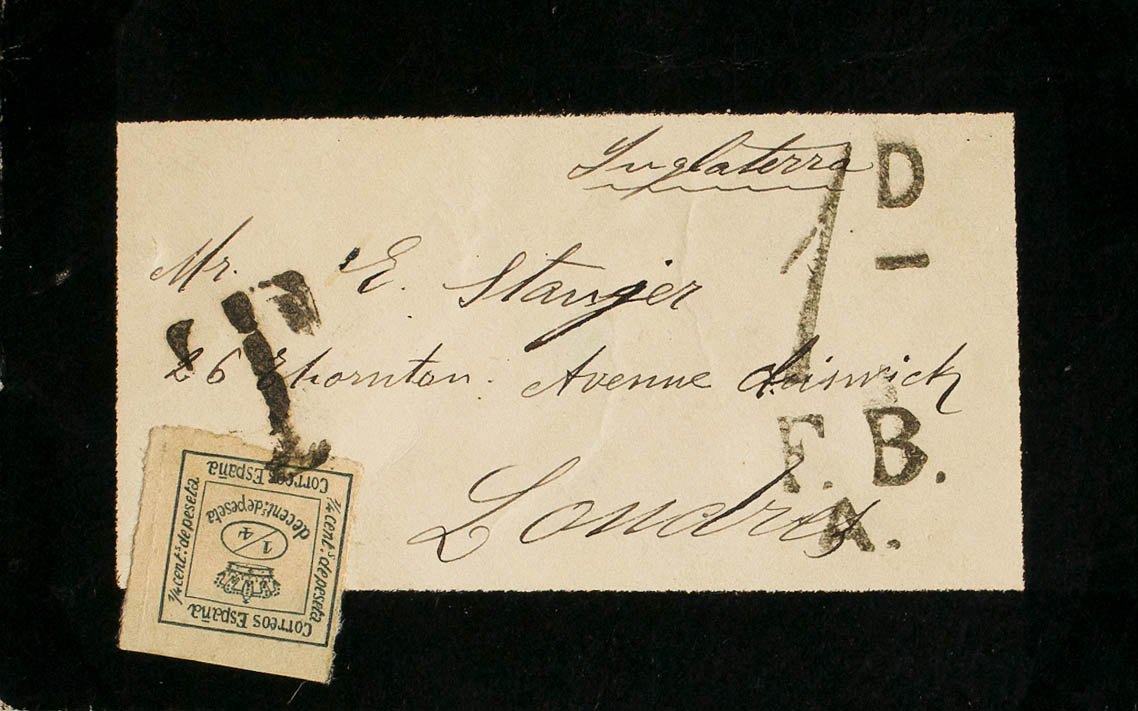 Inglaterra
1 D
Mr. E. Stanger
26 Thornton. Avenue Chiswick
Londres
T
F. B.
A.
Correos España
1/4 cent.s de peseta
1/4 cent.s de peseta
de cent.s de peseta
1/4
Correos España